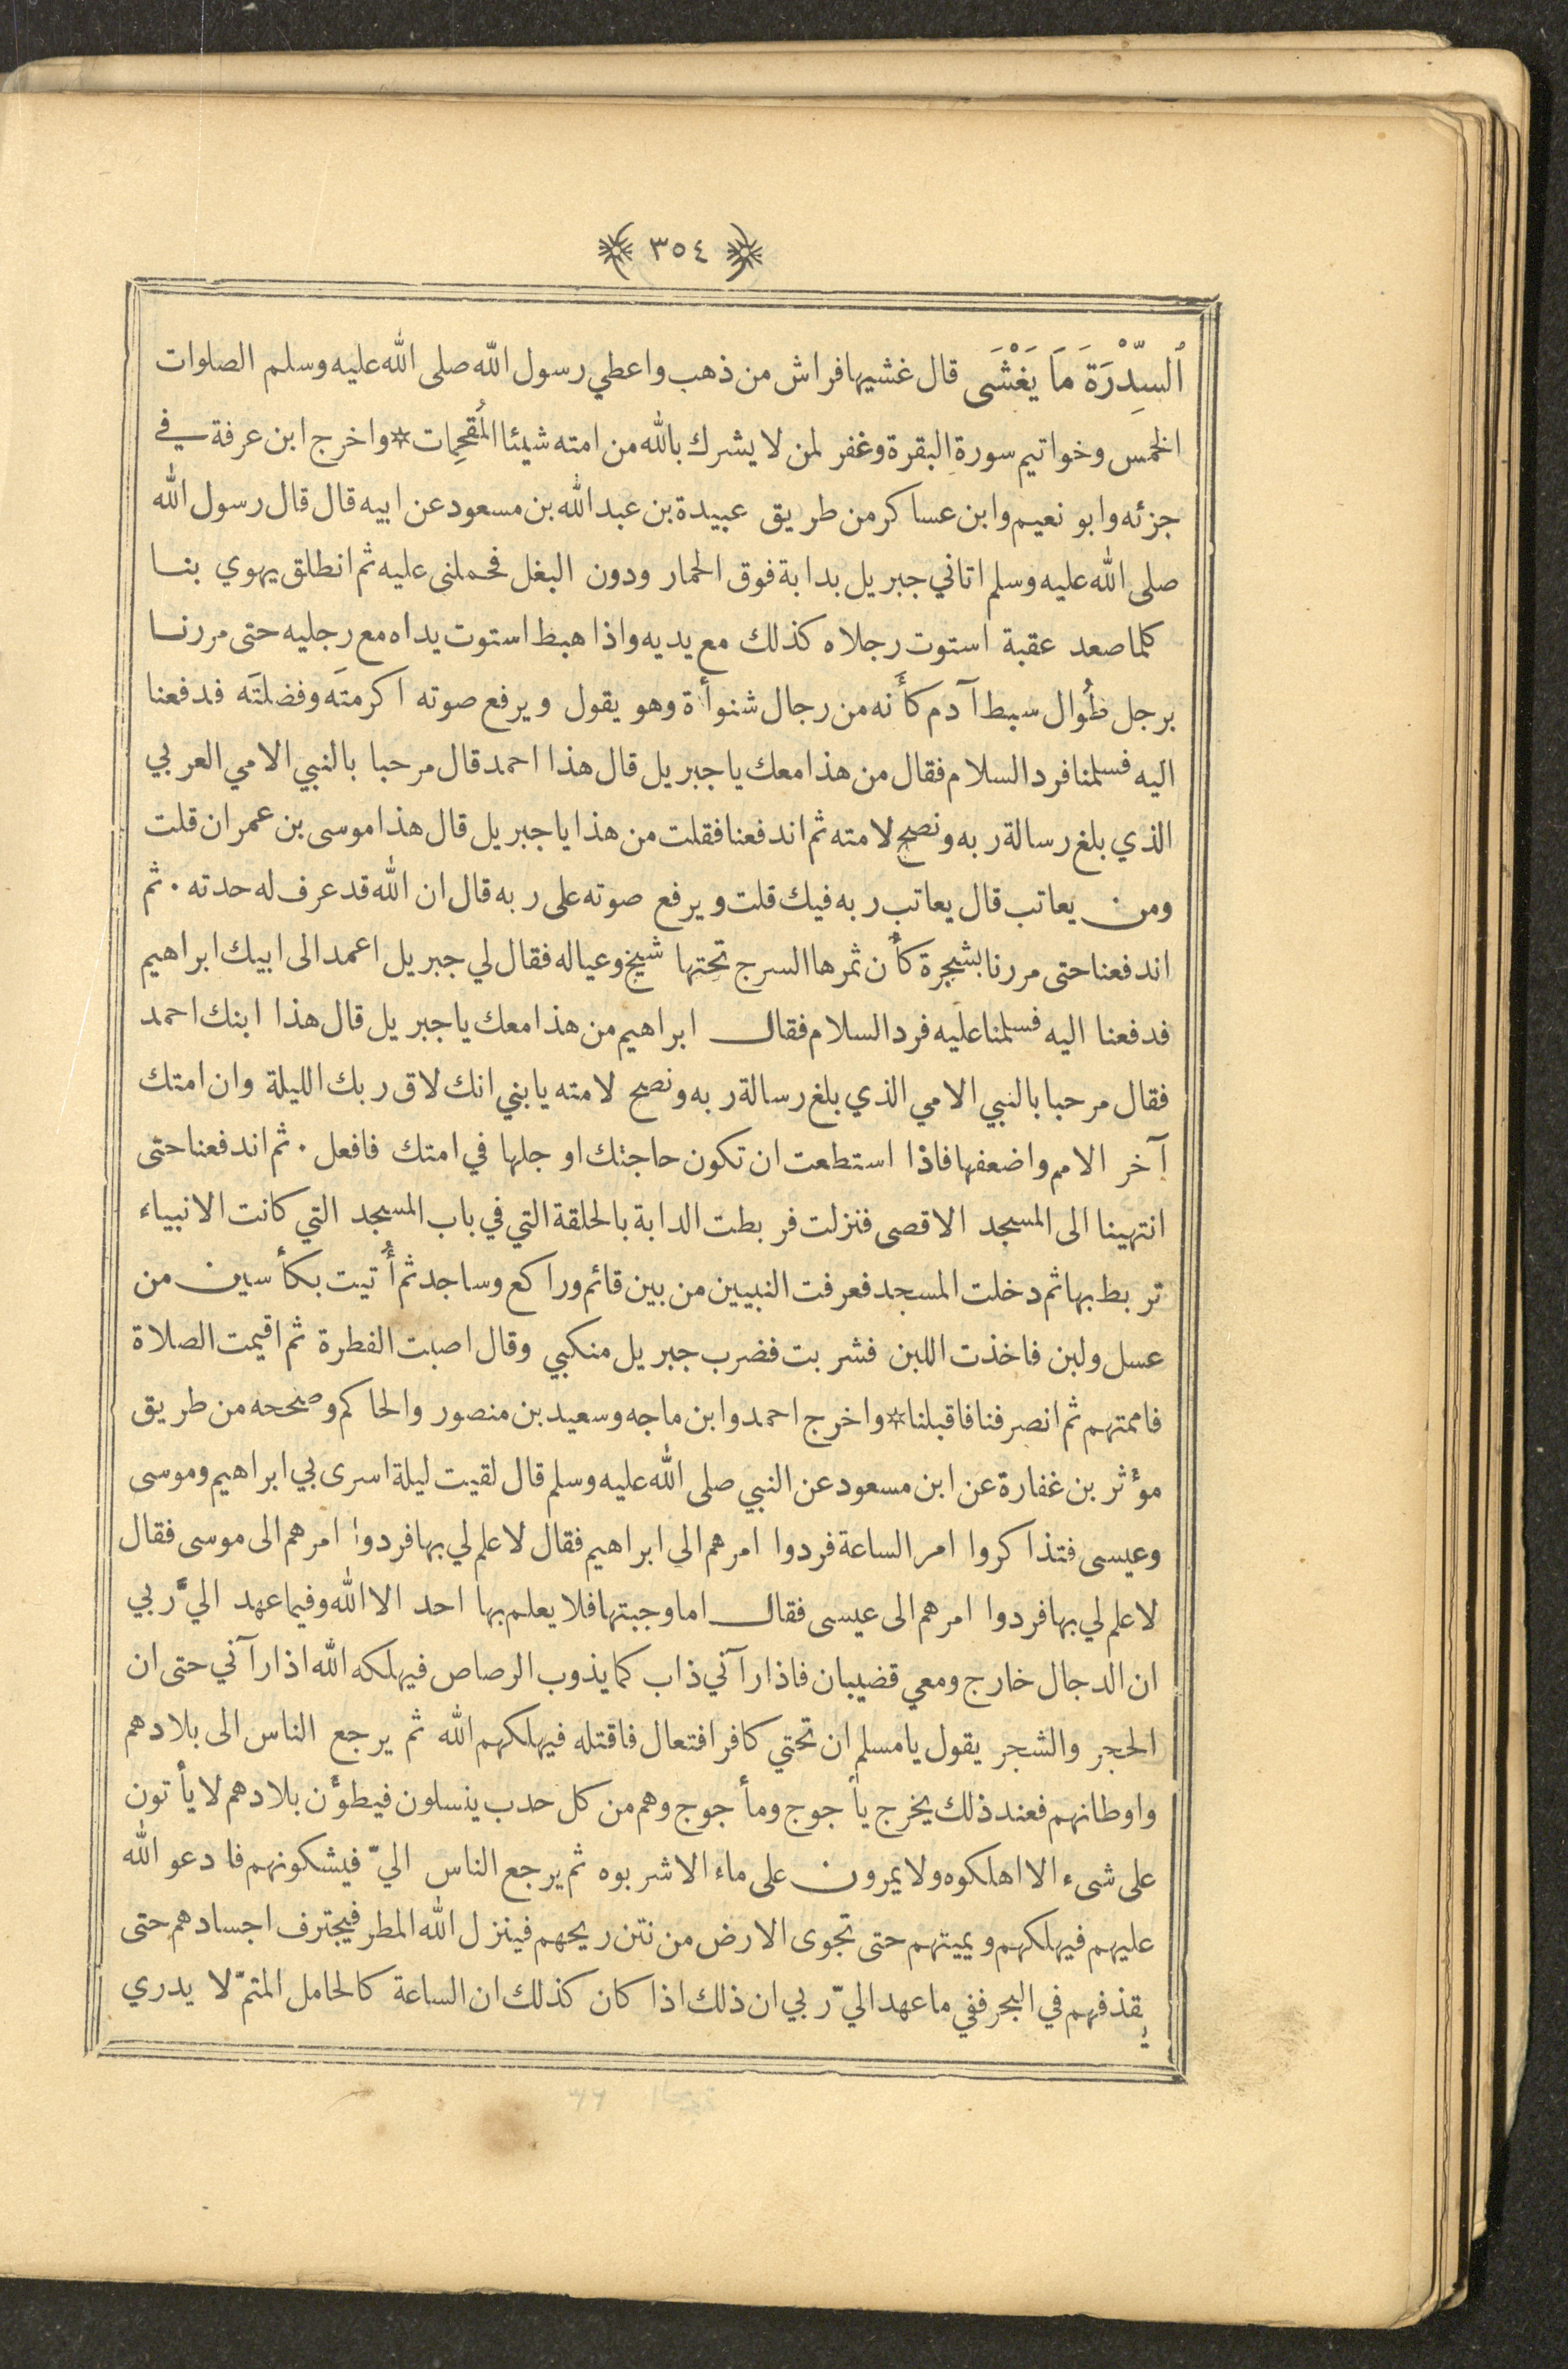 ٣٥٤
ٱلسِّدْرَةَ مَا يَغْشَى قال غشيها فراش من ذهب واعطي رسول الله صلى الله عليه وسلم الصلوات
الخمس وخواتيم سورة البقرة وغفر لمن لا يشرك بالله من امته شيئا المُقحِمات * واخرج ابن عرفة في
جزئه وابو نعيم وابن عساكر من طريق عبيدة بن عبد الله بن مسعود عن ابيه قال قال رسول الله
صلى الله عليه وسلم اتاني جبريل بدابة فوق الحمار ودون البغل فحملنى عليه ثم انطلق يهوي بنا
كلما صعد عقبة استوت رجلاه كذلك مع يديه واذا هبط استوت يداه مع رجليه حتى مررنا
برجل طُوال سبط آدم كأَنه من رجال شنوأة وهو يقول ويرفع صوته اكرمتَه وفضلتَه فدفعنا
اليه فسلمنا فرد السلام فقال من هذا معك يا جبريل قال هذا احمد قال مرحبا بالنبي الامي العربي
الذي بلغ رسالة ربه ونصح لامته ثم اندفعنا فقلت من هذا يا جبريل قال هذا موسى بن عمران قلت
ومن يعاتب قال يعاتب ربه فيك قلت ويرفع صوته على ربه قال ان الله قد عرف له حدته . ثم
اندفعنا حتى مررنا بشجرة كأن ثمرها السرج تحتها شيخ وعياله فقال لي جبريل اعمد الى ابيك ابراهيم
فدفعنا اليه فسلمنا عليه فرد السلام فقال ابراهيم من هذا معك يا جبريل قال هذا ابنك احمد
فقال مرحبا بالنبي الامي الذي بلغ رسالة ربه ونصح لامته يا بني انك لاق ربك الليلة وان امتك
آخر الامم واضعفها فاذا استطعت ان تكون حاجتك او جلها في امتك فافعل . ثم اندفعنا حتى
انتهينا الى المسجد الاقصى فنزلت فربطت الدابة بالحلقة التي في باب المسجد التي كانت الانبياء
تربط بها ثم دخلت المسجد فعرفت النبيين من بين قائم وراكع وساجد ثم أُتيت بكأسين من
عسل ولبن فاخذت اللبن فشربت فضرب جبريل منكبي وقال اصبت الفطرة ثم اقيمت الصلاة
فاممتهم ثم انصرفنا فاقبلنا * واخرج احمد وابن ماجه وسعيد بن منصور والحاكم وصححه من طريق
مؤثر بن غفارة عن ابن مسعود عن النبي صلى الله عليه وسلم قال لقيت ليلة اسرى بي ابراهيم وموسى
وعيسى فتذاكروا امر الساعة فردوا امرهم الى ابراهيم فقال لا علم لي بها فردوا امرهم الى موسى فقال
لا علم لي بها فردوا امرهم الى عيسى فقال اما وجبتها فلا يعلم بها احد الا الله وفيما عهد اليَّ ربي
ان الدجال خارج ومعي قضيبان فاذا رآني ذاب كما يذوب الرصاص فيهلكه الله اذا رآني حتى ان
الحجر والشجر يقول يا مسلم ان تحتي كافرا فتعال فاقتله فيهلكهم الله ثم يرجع الناس الى بلادهم
واوطانهم فعند ذلك يخرج يأجوج ومأجوج وهم من كل حدب ينسلون فيطؤن بلادهم لا يأتون
على شىء الا اهلكوه ولا يمرون على ماء الا شربوه ثم يرجع الناس اليّ فيشكونهم فادعو الله
عليهم فيهلكهم ويميتهم حتى تجوى الارض من نتن ريحهم فينزل الله المطر فيجترف اجسادهم حتى
يقذفهم في البحر ففي ما عهد اليّ ربي ان ذلك اذا كان كذلك ان الساعة كالحامل المتمّ لا يدري